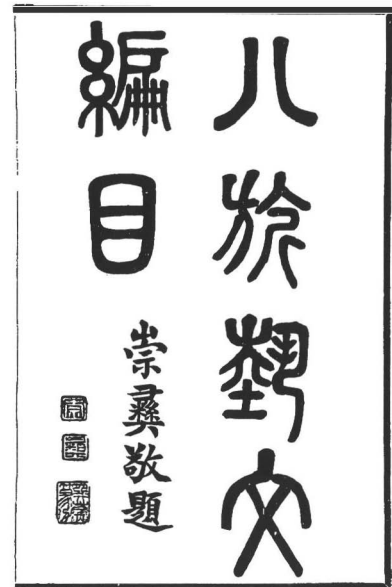 八旗藝文
編目
崇彝敬題